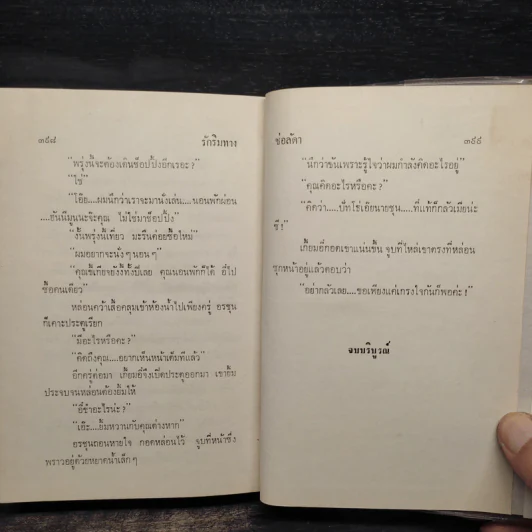 ๓๙๘ รักริมทาง
"พรุ่งนี้จะต้องเดินช็อปปิ้งอีกเรอะ?"
"ใช่"
"โอ๊ย....ผมนึกว่าเราจะมานั่งเล่น....นอนพักผ่อน
....ฮันนีมูนนะจ๊ะคุณ ไม่ใช่มาช็อปปิ้ง"
"งั้นพรุ่งนี้เที่ยว มะรืนค่อยซื้อไหม"
"ผมอยากจะนั่งๆ นอนๆ"
"คุณขี้เกียจยังงั้ทั้งปีเลย คุณนอนพักก็ได้ ยี่ไป
ซื้อคนเดียว"
หล่อนคว้าเสื้อคลุมเข้าห้องน้ำไปเพียงครู่ อรชุน
ก็เคาะประตูเรียก
"มีอะไรหรือคะ?"
"คิดถึงคุณ....อยากเห็นหน้าเต็มทีแล้ว"
อีกครู่ต่อมา เกี้ยมอี่จึงเปิดประตูออกมา เขายิ้ม
ประจบจนหล่อนต้องยิ้มให้
"ยี่ขำอะไรน่ะ?"
"เย๊ะ....ยิ้มหวานกับคุณต่างหาก"
อรชุนถอนหายใจ กอดหล่อนไว้ จูบที่หน้าซึ่ง
พราวอยู่ด้วยหยาดน้ำเล็กๆ
ช่อลัดา ๓๙๙
"นึกว่าขันเพราะรู้ใจว่าผมกำลังคิดอะไรอยู่"
"คุณคิดอะไรหรือคะ?"
"คิดว่า.....บ๊ะใช่เฮียนายชุน.....ที่แท้ก็กลัวเมียน่ะ
ซี!"
เกี้ยมอี่กอดเขาแน่นขึ้น จูบที่ไหล่เขาตรงที่หล่อน
ซุกหน้าอยู่แล้วตอบว่า
"อย่ากลัวเลย....ขอเพียงแค่เกรงใจกันก็พอค่ะ!"
จบบริบูรณ์